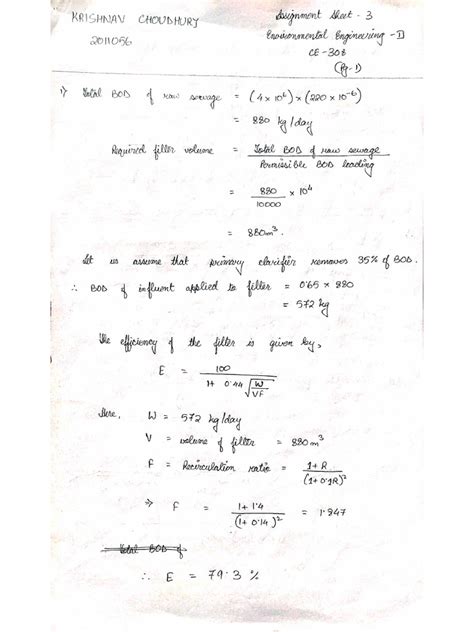 KRISHNAV CHOUDHURY
2011056
Assignment Sheet - 3
Environmental Engineering - II
CE - 308
(Pg-1)
1) Total BOD of raw sewage = (4 x 10⁶) x (220 x 10⁻⁶)
= 880 kg/day
Required filter volume = Total BOD of raw sewage / Permissible BOD loading
= 880 / 10000 x 10⁴
= 880m³.
Let us assume that primary clarifier removes 35% of BOD.
∴ BOD of influent applied to filter = 0.65 x 880
= 572 kg
The efficiency of the filter is given by,
E = 100 / 1+ 0.44 √W/VF
Here, W = 572 kg/day
V = volume of filter = 880m³
F = Recirculation ratio = 1+R / (1+0.1R)²
⇒ F = 1+1.4 / (1+0.14)² = 1.847
Total BOD of
∴ E = 79.3 %